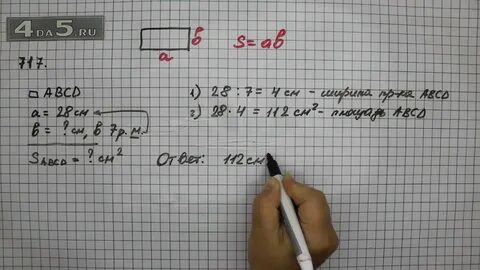 4DA5.RU
717.
в
a
S = aв
□ ABCD
a = 28 см
в = ? см, в 7 р. м.
S ABCD = ? см²
1) 28 : 7 = 4 см - ширина пр-ка ABCD
2) 28 · 4 = 112 см² - площадь ABCD
Ответ: 112 см